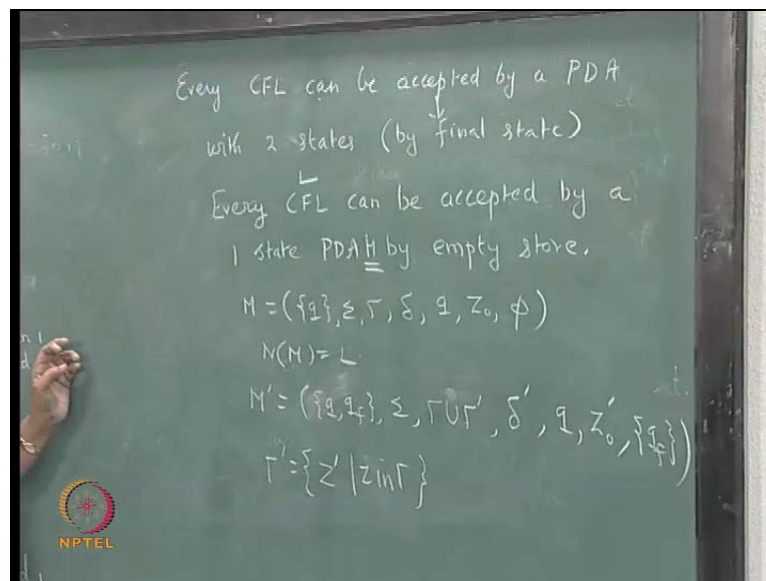 Every CFL can be accepted by a PDA
with 2 states (by final state)
L
Every CFL can be accepted by a
1 state PDA M by empty store.
M = ({q}, Σ, Γ, δ, q, Z₀, φ)
N(M) = L
M' = ({q, q_f}, Σ, Γ∪Γ', δ', q, Z₀', {q_f})
Γ' = {Z' | Z in Γ}
NPTEL